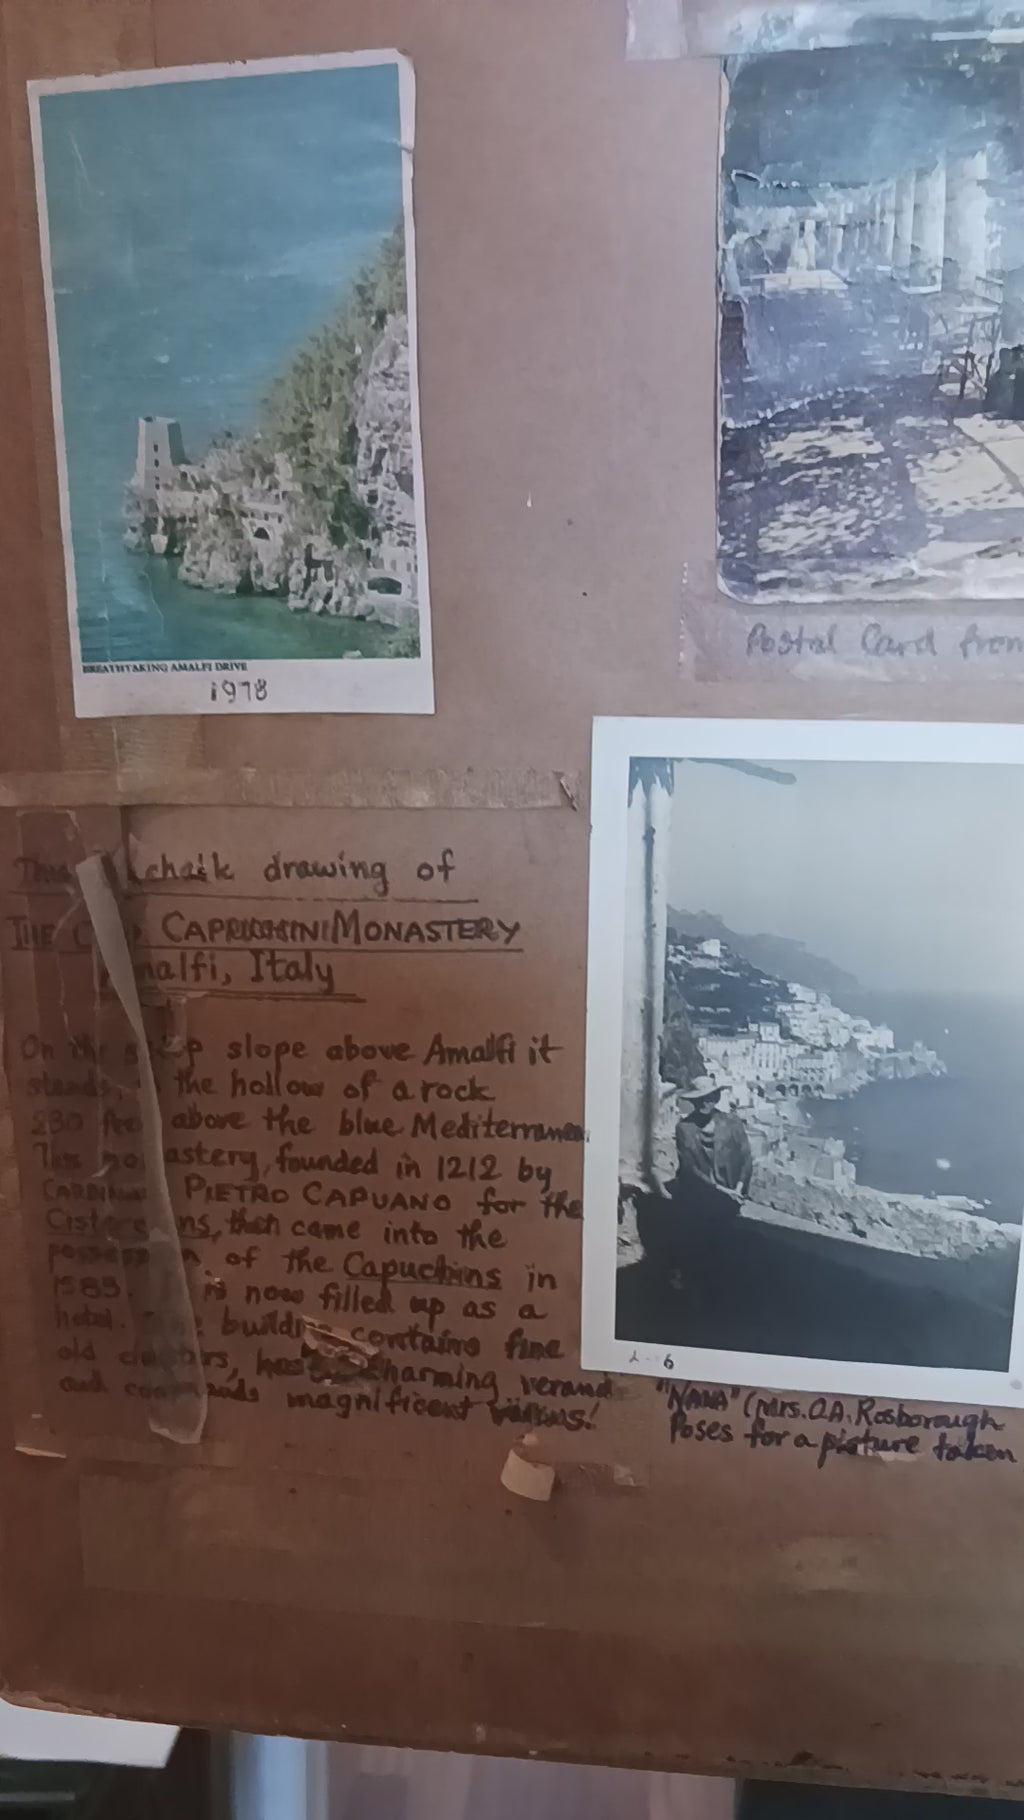 BREATHTAKING AMALFI DRIVE
1978
Postal Card from
This chalk drawing of
THE CAPPUCHINI MONASTERY
Amalfi, Italy
On the steep slope above Amalfi it
stands, the hollow of a rock
230 feet above the blue Mediterranean
This monastery, founded in 1212 by
CARDINAL PIETRO CAPUANO for the
Cistercians, then came into the
possession of the Capuchins in
1583. is now filled up as a
hotel. The building contains fine
old cloisters, has charming verand
and commands magnificent
"NANA" (Mrs. O.A. Rosborough
Poses for a picture taken